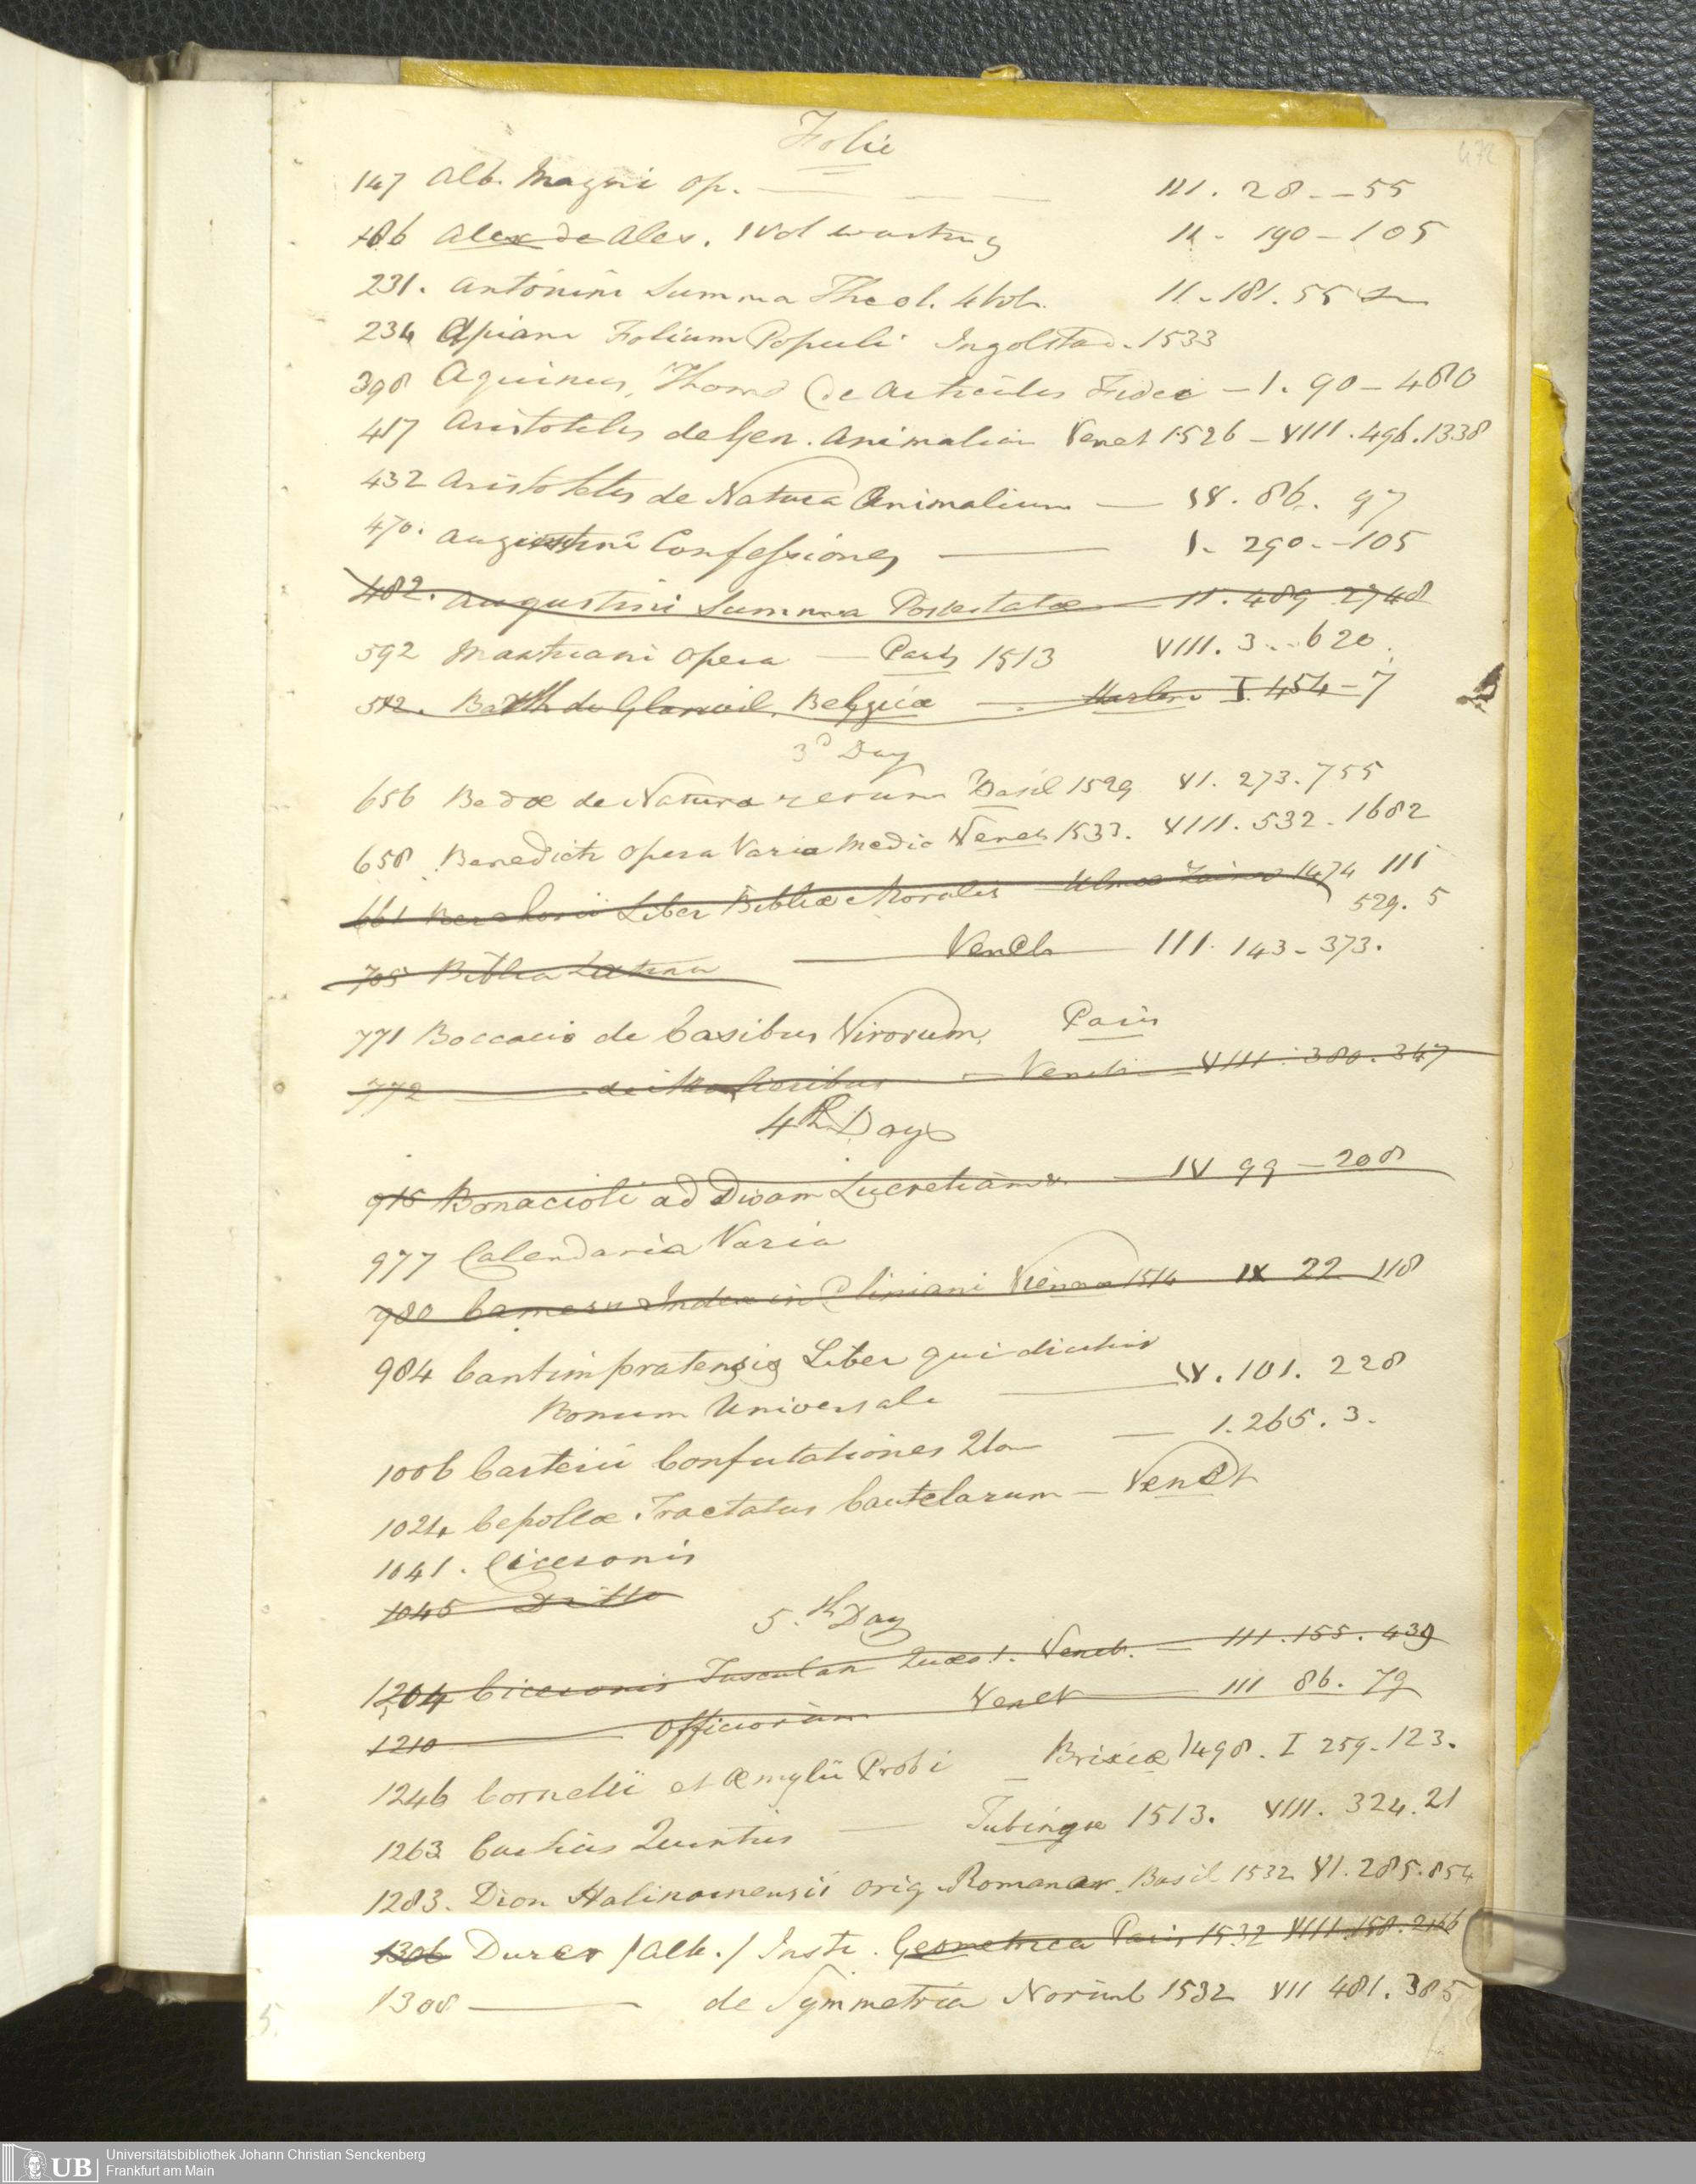 472
Folio
147 Alb. Magni Op. — — — 111. 28 – – 55
186 Alex de Ales. 1 Vol wanting 11 – 190 – 105
231. Antonini Summa Theol. 4 Vols. 11 – 181. 55
234 Apiani Folium Populi Ingolstad. 1533
398 Aquinas, Thoma (de Articulis Fidei – 1. 90 – 480
417 Aristotelis de Gen. Animalium Venet 1526 – VIII. 496. 1338
432 Aristotelis de Natura Animalium — IV. 86. 97
470. Augustini Confessiones — 1. 290. – 105
482. Augustini Summa Potestatæ — 11. 489 2748
592 Mantuani Opera — Paris 1513 VIII. 3. – 620.
Barth de Glanvil, Belgicæ — Harlem I. 454 – 7
3d Day
656 Bedæ de Natura rerum Basil 1529 VI. 273. 755
658 Benedicti Opera Varia Medic Venet 1533. VIII. 532. 1682
661 Berchorii Liber Bibliæ Moralis Ulmæ Zainer 1474 111
529. 5
705 Biblia Latina — Venet — 111. 143 – 373.
771 Boccacio de Casibus Virorum, Paris
772 — de Mulieribus — Venet — VIII. 380. 347
4th Day
915 Bonacioli ad Divam Lucretiam — IV 99 – 208
977 Calendaria Varia
980 Camers Index in Pliniani Vienna 1514 IX 22 118
984 Cantimpratensis Liber qui dicitur
Bonum Universale — IV. 101. 228
1006 Carterii Confutationes — 1. 265. 3.
1024 Cepollæ Tractatus Cautelarum – Venet
1041. Ciceronis
1045 Ditto
5th Day
1204 Ciceronis Tusculan Quæst. Venet. — 111. 155. 439
1210 — Officiorum Venet — 111 86. 79
1246 Cornelii et Æmylii Probi Brixiæ 1498. I 259. 123.
1263 Curtius Quintus — Tubingæ 1513. VIII. 324. 21
1283. Dion Halinarnensis orig. Romanar. Basil 1532 VI. 285. 854
1306 Durer (Alb.) Insti. Geometrica Paris 1532 VIII. 158. 2166
1308 — de Symmetria Norimb 1532 VII 481. 385
5.
UB
Universitätsbibliothek Johann Christian Senckenberg
Frankfurt am Main